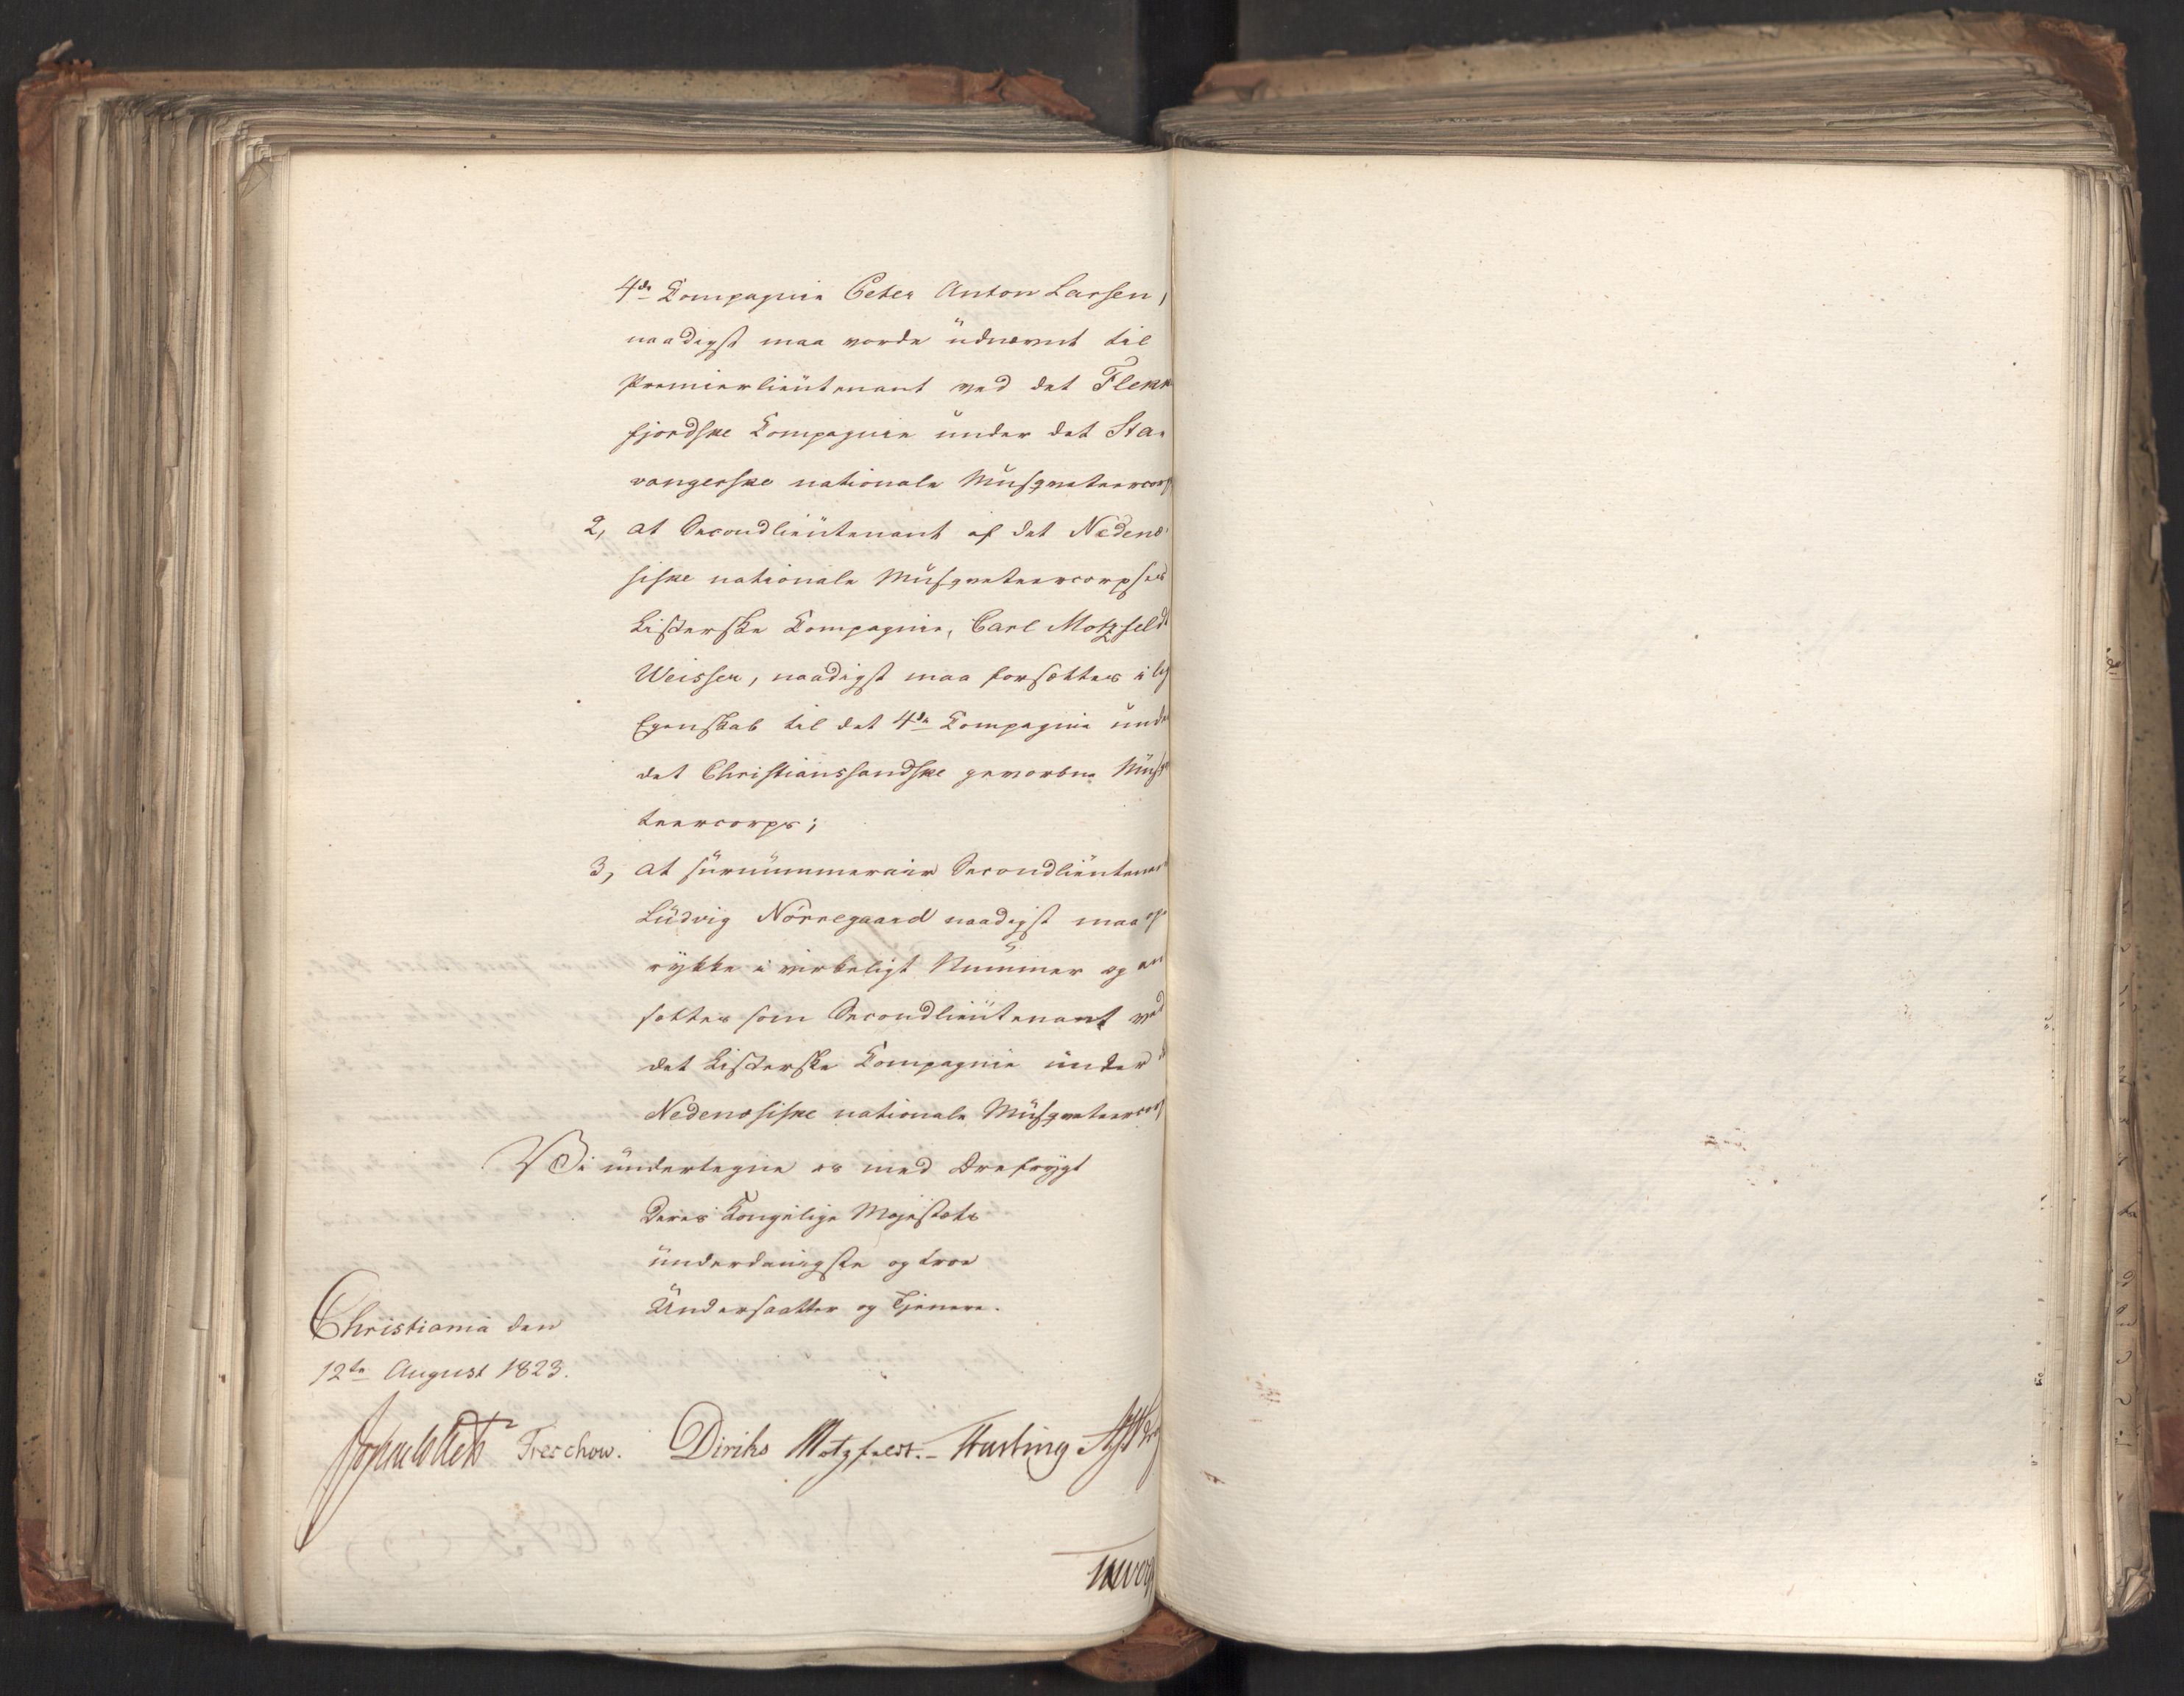 4de Compagnie Peter Anton Larsen,
naadigst maa vorde udnævnt til
Premierlieutenant ved det Flekke
fjordske Compagnie under det Sta-
vangerske nationale Musqueteercorps
2, at Secondlieutenant af det Nedenæ-
siske nationale Musqueteercorpses
Listerske Compagnie, Carl Motzfeldt
Weisser, naadigst maa forsættes i lige
Egenskab til det 4de Compagnie under
det Christianssandske gevorbne Musque
teercorps;
3, at surnummerair Secondlieutenant
Ludvig Nørregaard naadigst maa op-
rykke i virkeligt Nummer og an
sættes som Secondlieutenant ved
det Listerske Compagnie under
Nedenæsiske nationale Musqueteercorps
Vi undertegne os med Ærefrygt
Deres Kongelige Majestæts
underdanigste og troe
Undersaatter og Tjenere.
Christiania den
12te August 1823.
Jonas Collett Treschow. Diriks Motzfeldt. Fasting